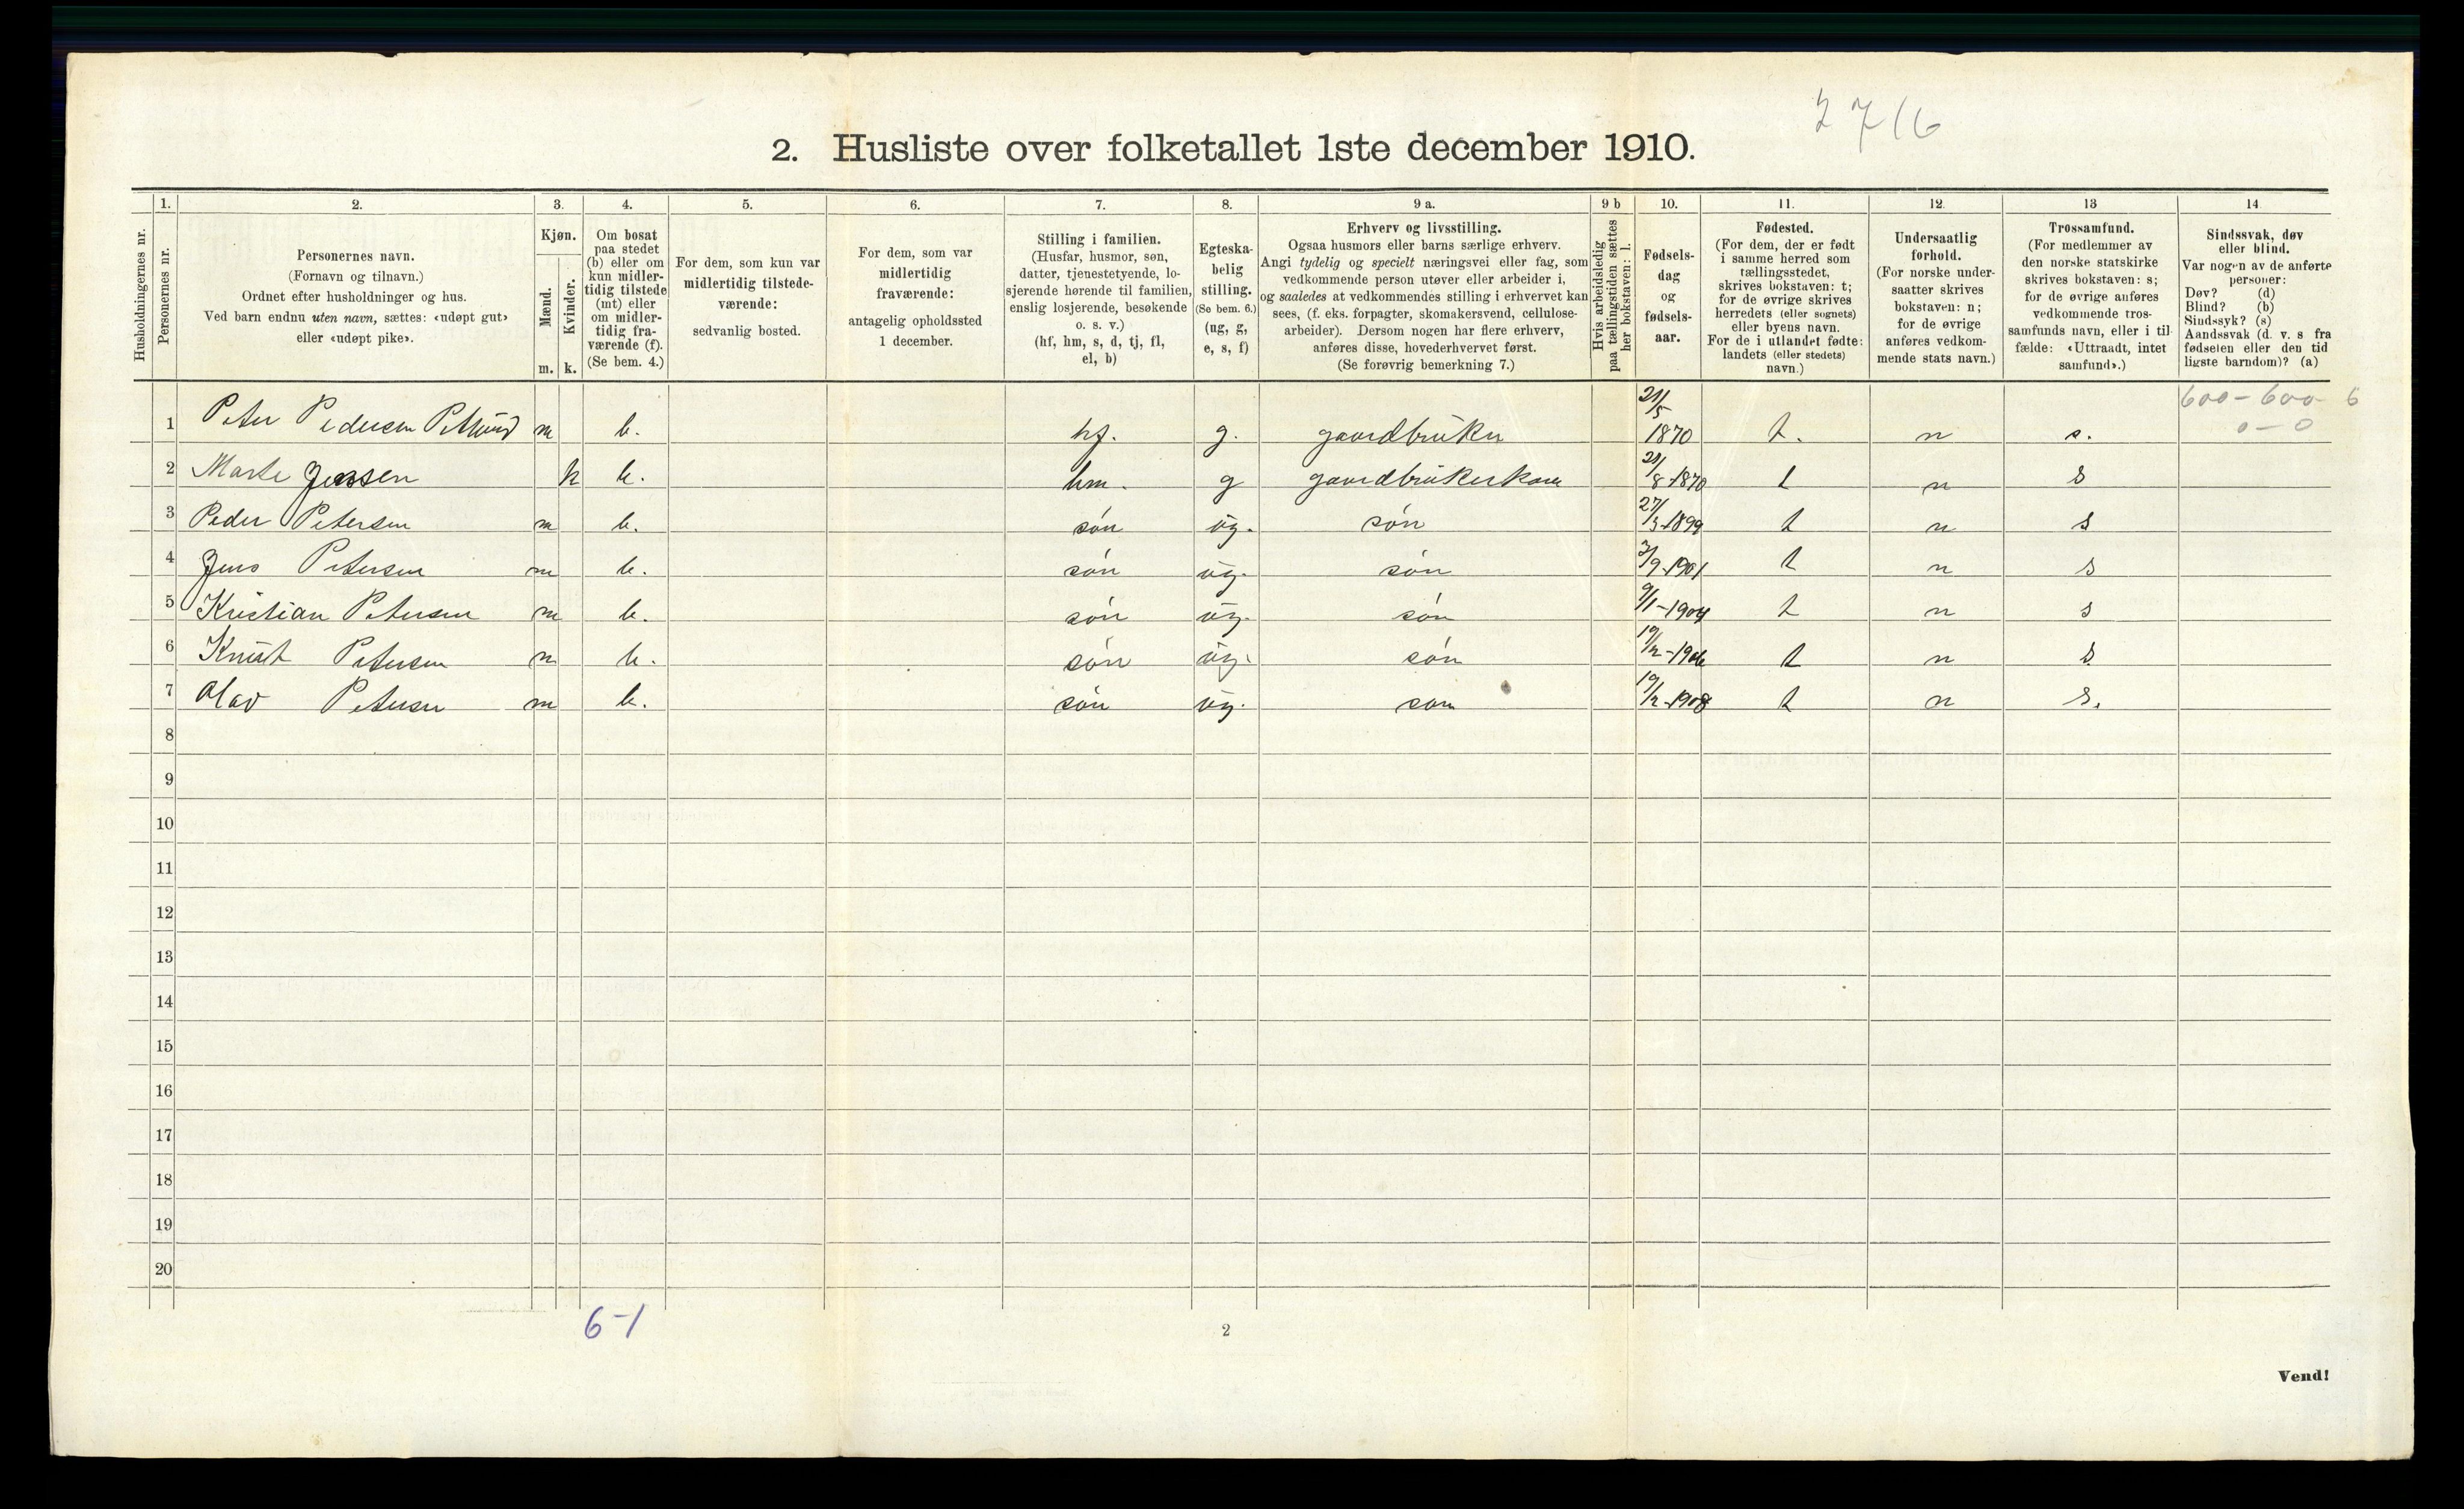 2716
2. Husliste over folketallet 1ste december 1910.
Husholdningernes nr.
1.
Personernes nr.
2.
Personernes navn.
(Fornavn og tilnavn.)
Ordnet efter husholdninger og hus.
Ved barn endnu uten navn, sættes: «udøpt gut»
eller «udøpt pike».
3.
Kjøn.
Mænd.
Kvinder.
m. k.
4.
Om bosat
paa stedet
(b) eller om
kun midler-
tidig tilstede
(mt) eller
om midler-
tidig fra-
værende (f).
(Se bem. 4.)
5.
For dem, som kun var
midlertidig tilstede-
værende:
sedvanlig bosted.
6.
For dem, som var
midlertidig
fraværende:
antagelig opholdssted
1 december.
7.
Stilling i familien.
(Husfar, husmor, søn,
datter, tjenestetyende, lo-
sjerende hørende til familien,
enslig losjerende, besøkende
o. s. v.)
(hf, hm, s, d, tj, fl,
el, b)
8.
Egteska-
belig
stilling.
(Se bem. 6.)
(ug, g,
e, s, f)
9 a.
Erhverv og livsstilling.
Ogsaa husmors eller barns særlige erhverv.
Angi tydelig og specielt næringsvei eller fag, som
vedkommende person utøver eller arbeider i,
og saaledes at vedkommendes stilling i erhvervet kan
sees, (f. eks. forpagter, skomakersvend, cellulose-
arbeider). Dersom nogen har flere erhverv,
anføres disse, hovederhvervet først.
(Se forøvrig bemerkning 7.)
9 b
Hvis arbeidsledig
paa tællingstiden sættes
her bokstaven: l.
10.
Fødsels-
dag
og
fødsels-
aar.
11.
Fødested.
(For dem, der er født
i samme herred som
tællingsstedet,
skrives bokstaven: t;
for de øvrige skrives
herredets (eller sognets)
eller byens navn.
For de i utlandet fødte:
landets (eller stedets)
navn.)
12.
Undersaatlig
forhold.
(For norske under-
saatter skrives
bokstaven: n;
for de øvrige
anføres vedkom-
mende stats navn.)
13
Trossamfund.
(For medlemmer av
den norske statskirke
skrives bokstaven: s;
for de øvrige anføres
vedkommende tros-
samfunds navn, eller i til-
fælde: «Uttraadt, intet
samfund».)
14
Sindssvak, døv
eller blind.
Var nogen av de anførte
personer:
Døv? (d)
Blind? (b)
Sindssyk? (s)
Aandssvak (d. v. s fra
fødselen eller den tid
ligste barndom)? (a)
600 – 600 6
0 – 0
1 Peter Pedersen m b. hf. g. gaardbruker 21/5 1870 t. n s.
2 Marte Jenssen k b. hm. g gaardbrukerkone 21/8-1870 t n s
3 Peder Petersen m b. søn ug. søn 27/3-1899 t n s
4 Jens Petersen m b. søn ug. søn 3/9-1901 t n s
5 Kristian Petersen m b. søn ug. søn 9/1-1904 t n s
6 Knut Petersen m b. søn ug. søn 19/2-1906 t n s
7 Olav Petersen m b. søn ug. søn 19/2-1908 t n s.
8
9
10
11
12
13
14
15
16
17
18
19
20
6-1
2
Vend!